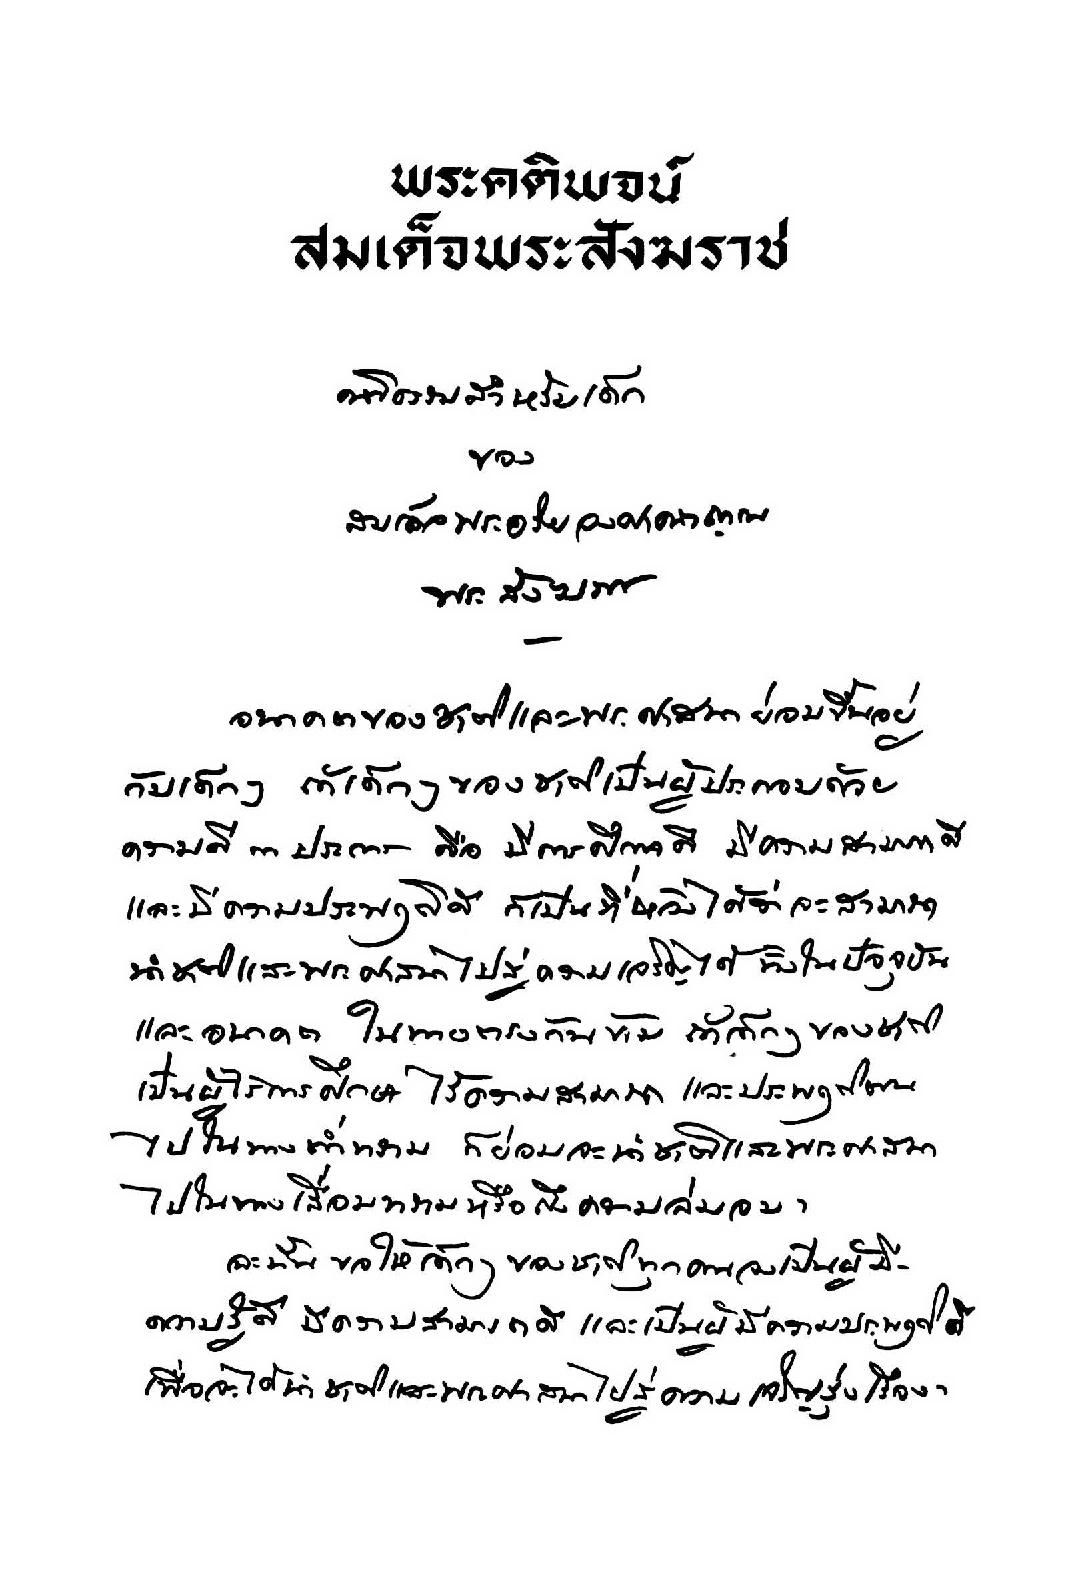 พระคติพจน์
สมเด็จพระสังฆราช
คติธรรมสำหรับเด็ก
ของ
สมเด็จพระอริยวงศาคตญาณ
พระสังฆราช
อนาคตของชาติและพระศาสนาย่อมขึ้นอยู่
กับเด็กๆ ถ้าเด็กๆของชาติเป็นผู้ประกอบด้วย
ความดี ๓ ประการ คือ มีการศึกษาดี มีความสามารถดี
และมีความประพฤติดี ก็เป็นที่หวังได้ว่าจะสามารถ
นำชาติและพระศาสนาไปสู่ความเจริญได้ ทั้งในปัจจุบัน
และอนาคต ในทางตรงกันข้าม ถ้าเด็กๆของชาติ
เป็นผู้ไร้การศึกษา ไร้ความสามารถ และประพฤติตน
ไปในทางต่ำทราม ก็ย่อมจะนำชาติและพระศาสนา
ไปในทางเสื่อมทรามหรือถึงความล่มจม ฯ
ฉะนั้น ขอให้เด็กๆ ของชาติทุกคนจงเป็นผู้มี-
ความรู้ดี มีความสามารถดี และเป็นผู้มีความประพฤติดี
เพื่อจะได้นำชาติและพระศาสนาไปสู่ความเจริญรุ่งเรือง ฯ